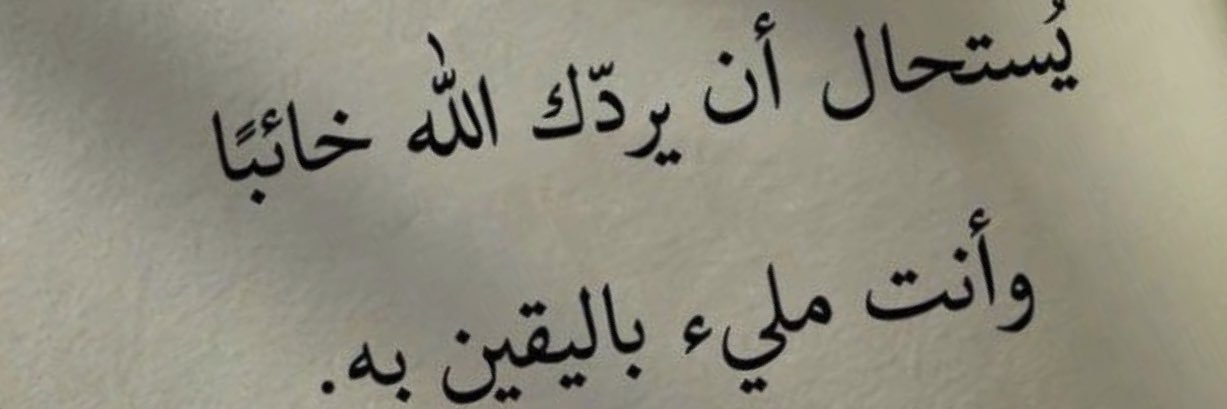 يُستحال أن يردّك الله خائبًا
وأنت مليء باليقين به.